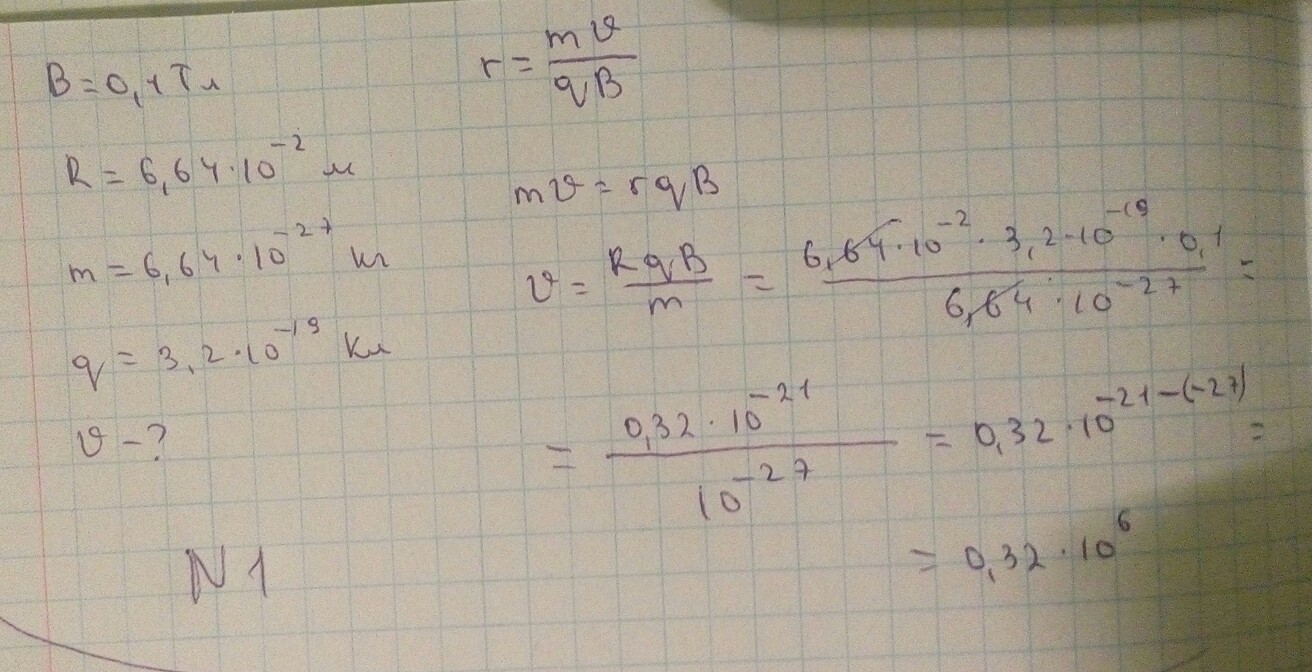 B = 0,1 Тл
R = 6,64 · 10⁻² м
m = 6,64 · 10⁻²⁷ кг
q = 3,2 · 10⁻¹⁹ Кл
υ – ?
N 1
r = mυ / qB
mυ = rqB
υ = RqB / m = 6,64 · 10⁻² · 3,2 · 10⁻¹⁹ · 0,1 / 6,64 · 10⁻²⁷ =
= 0,32 · 10⁻²¹ / 10⁻²⁷ = 0,32 · 10⁻²¹⁻⁽⁻²⁷⁾ =
= 0,32 · 10⁶